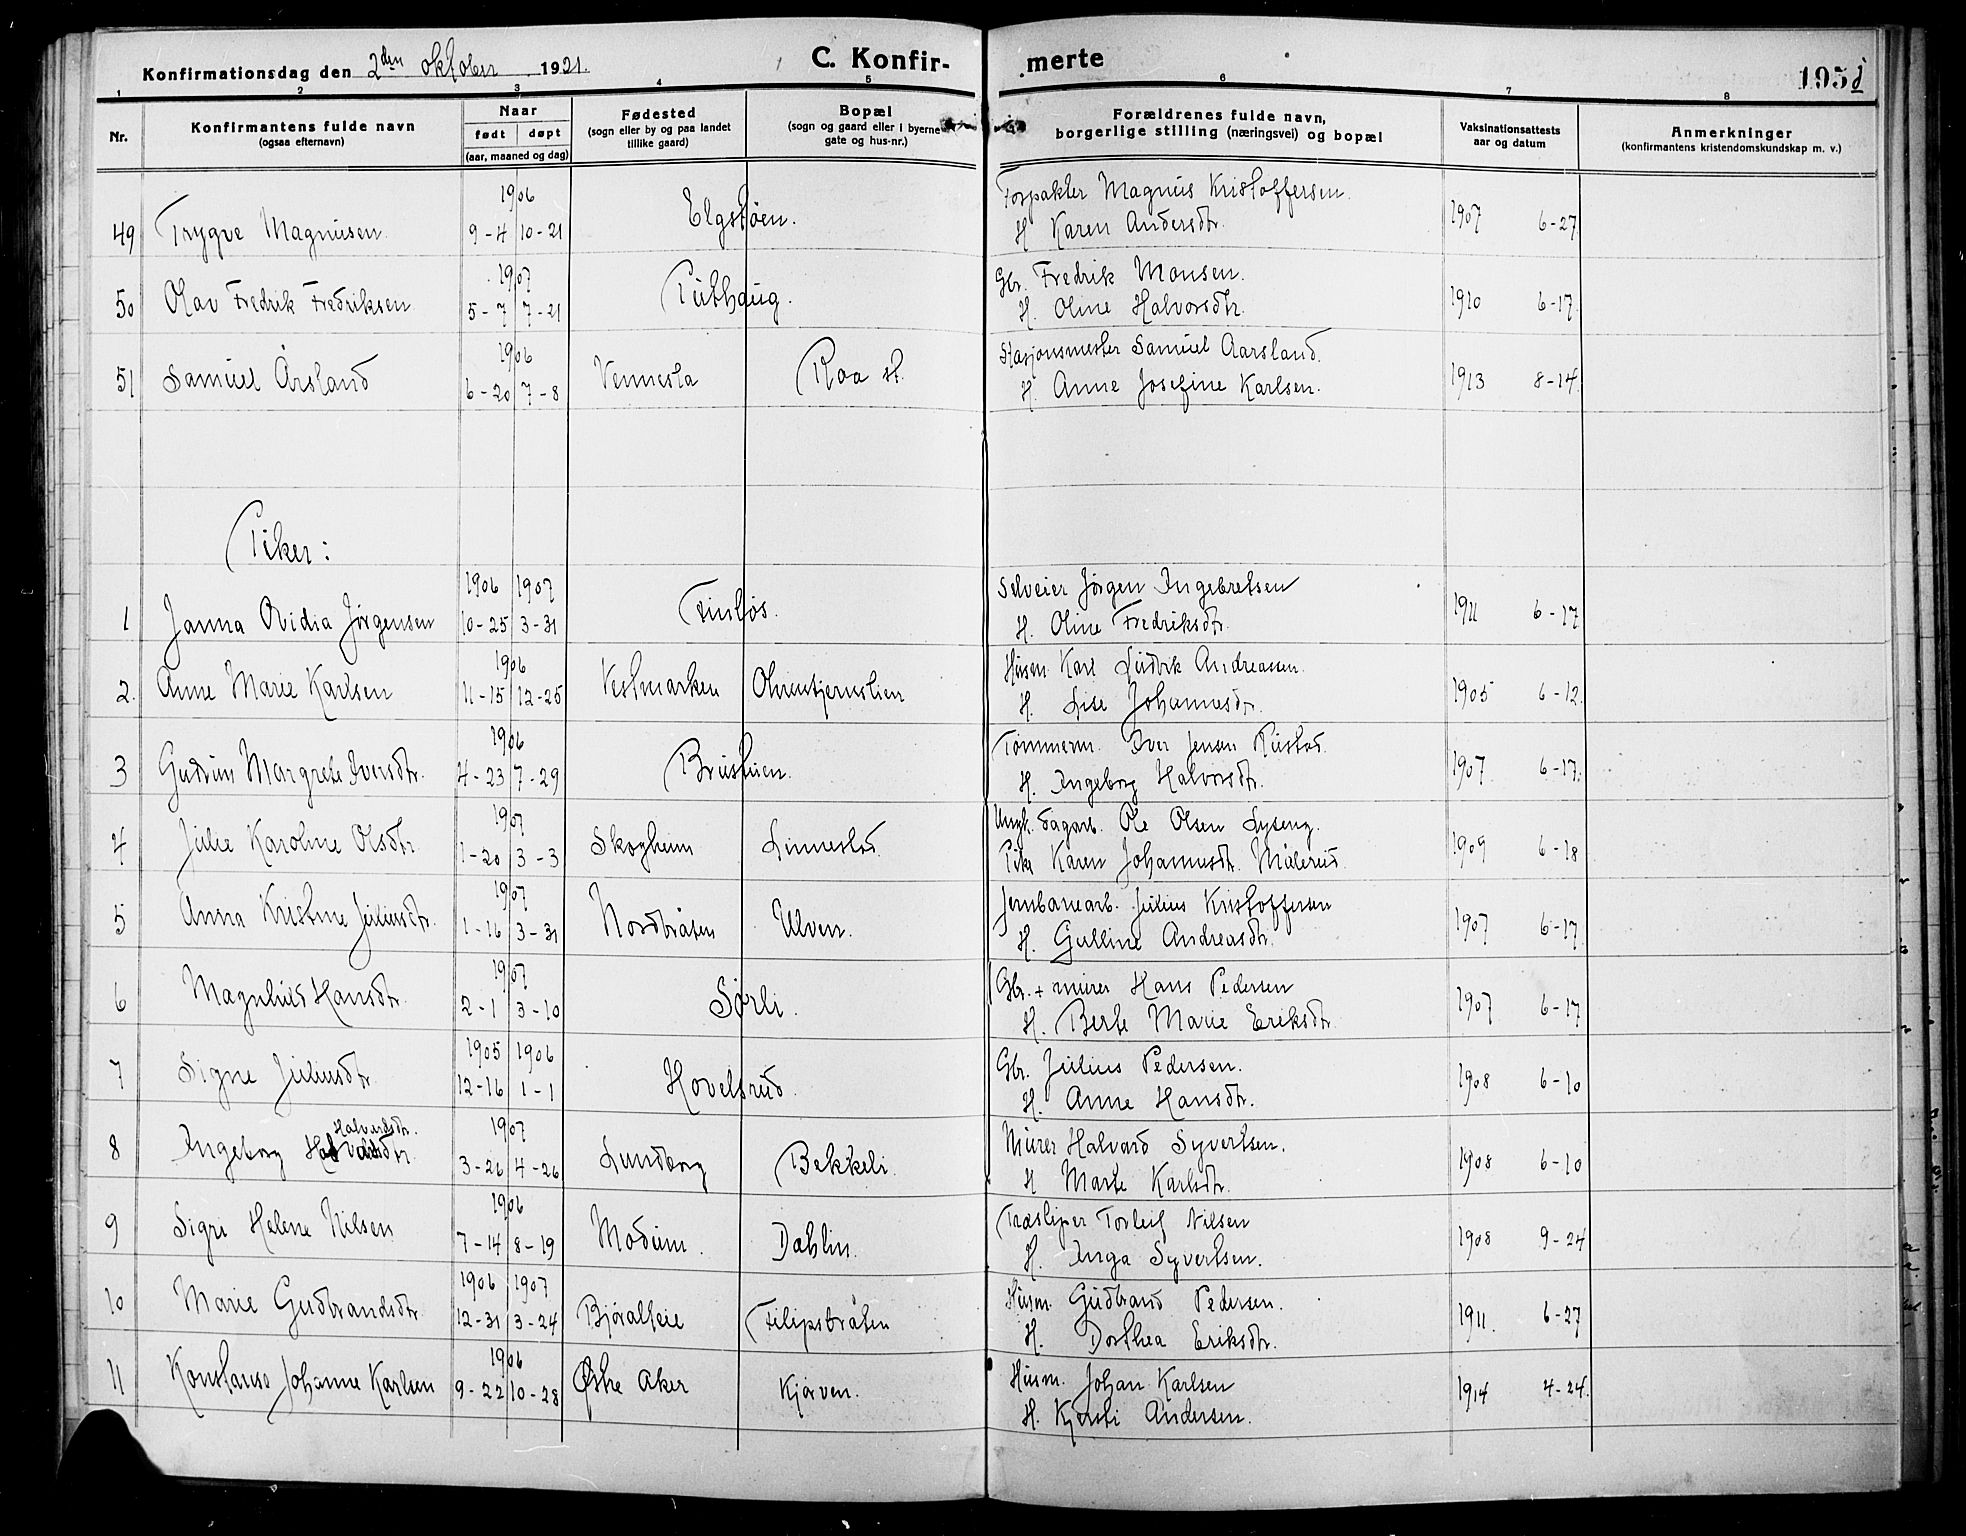 Konfirmationsdag den 2den oktober 1921. C. Konfir- merte 195 d
1 2 3 4 5 6 7 8
Nr. Konfirmantens fulde navn (ogsaa efternavn) Naar født døpt (aar, maaned og dag) Fødested (sogn eller by og paa landet tillike gaard) Bopæl (sogn og gaard eller i byerne gate og hus-nr.) Forældrenes fulde navn, borgerlige stilling (næringsvei) og bopæl Vaksinationsattests aar og datum Anmerkninger (konfirmantens kristendomskundskap m. v.)
1906 Forpakter Magnus Kristoffersen.
49 Trygve Magnusen 9-4 10-21 Elgstøen. H. Karen Andersdtr. 1907 6-27
1907 Gbr. Fredrik Monsen.
50 Olav Fredrik Fredriksen 5-7 7-21 H. Oline Halvorsdtr. 1910 6-17
1906 Stasjonsmester Samuel Aarsland.
51 Samuel Årsland 6-20 7-8 Vennesla Roa st. H. Anne Josefine Karlsen. 1913 8-14
Piker:
1906 1907 Selveier Jørgen Ingebretsen
1 Janna Ovidia Jørgensen 10-25 3-31 Finsløs. H. Oline Fredriksdtr. 1911 6-17
1906 Husm. Karl Ludvik Andreassen.
2. Anne Marie Karlsen 11-15 12-25 Vestmarken H. Lise Johannesdtr. 1905 6-12
1906 Tømmerm. Iver Jensen Rustad.
3 Gudrun Margrete Iversdtr. 4-23 7-29 H. Ingeborg Halvorsdtr. 1907 6-17.
1907 Ungk. dagarb. Ole Olsen Lyseng.
4 Julie Karoline Olsdtr. 1-20 3-3 Skogheim Linnestad. Pike Karen Johannesdtr. Målerud 1909 6-18
1907 Jernbanearb. Julius Kristoffersen
5 Anna Kristine Juliusdtr. 1-16 3-31 Nordbråten Ulven. H. Gulline Andreasdtr. 1907 6-17
1907 Gbr. + murer Hans Pedersen
6 Magnhild Hansdtr. 2-1 3-10 Sørli. H. Berte Marie Eriksdtr. 1907 6-17
1905 1906 Gbr. Julius Pedersen.
7 Signe Juliusdtr. 12-16 1-1 Hovelsrud. H. Anne Hansdtr. 1908 6-10
Halvardsdtr. 1907 Murer Halvard Syvertsen.
8 Ingeborg 3-26 4-26 Lundborg Bekkeli. H Marte Karlsdtr. 1908 6-10
1906 Træsliper Torleif Nilsen
9 Sigri Helene Nilsen 7-14 8-19 Modum. Dahlin. H. Inga Syvertsen. 1908 9-24
1906 1907 Husm. Gudbrand Pedersen.
10 Marie Gudbrandsdtr. 12-31 3-24 Bjøralteie Filipsbråten H. Dorthea Eriksdtr. 1911. 6-27
1906 Husm. Johan Karlsen
11 Konstanse Johanne Karlsen 9-22 10-28 Østre Aker Kjørven. H. Kjersti Andersen. 1914 4-24.